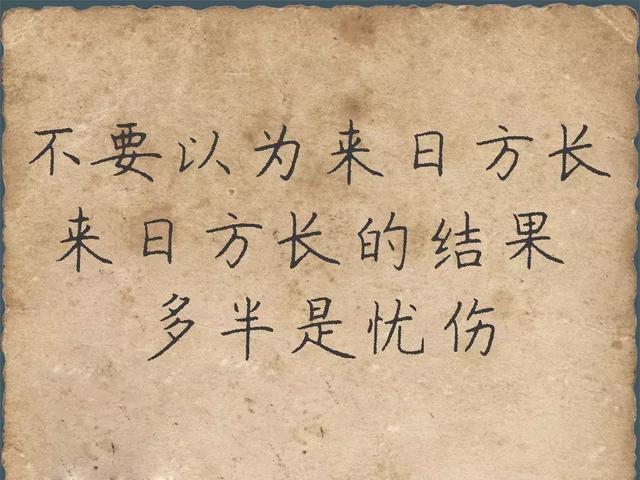 不要以为来日方长
来日方长的结果
多半是忧伤